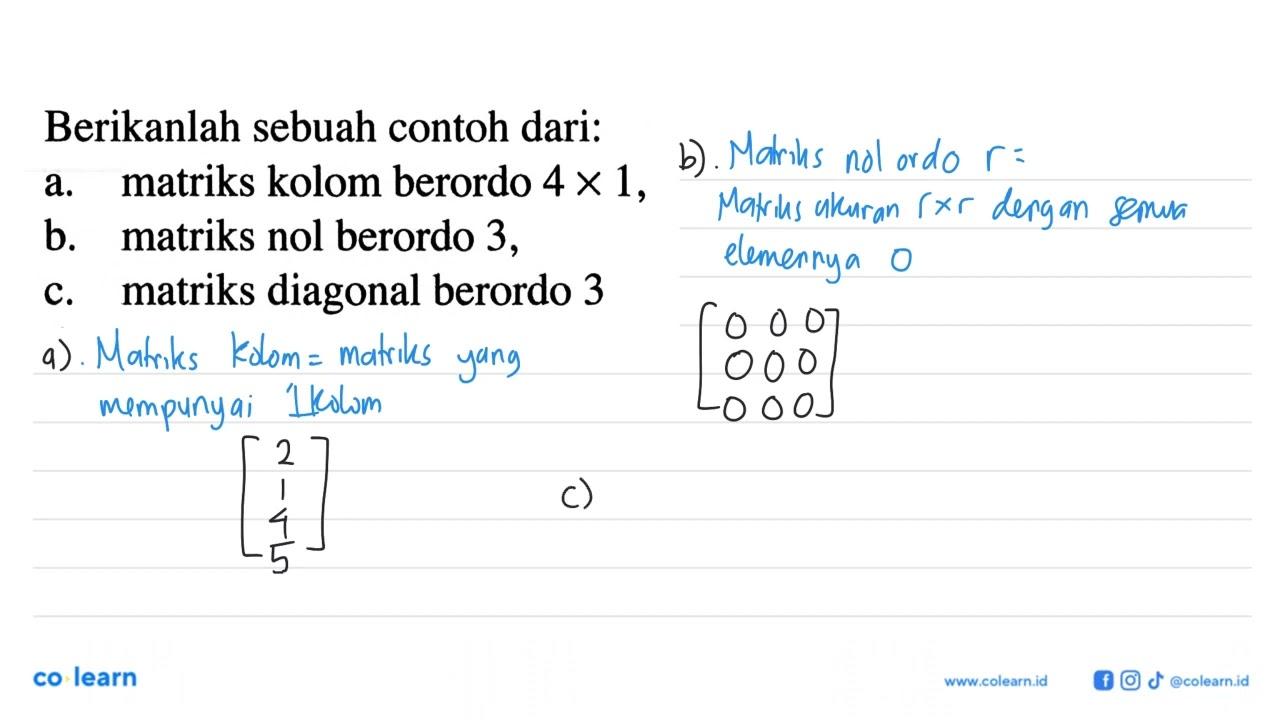 Berikanlah sebuah contoh dari:
a. matriks kolom berordo 4 × 1,
b. matriks nol berordo 3,
c. matriks diagonal berordo 3
a). Matriks kolom = matriks yang
mempunyai 1 kolom
2
1
4
5
b). Matriks nol ordo r =
Matriks ukuran r×r dengan semua
elemennya 0
0 0 0
0 0 0
0 0 0
c)
co learn
www.colearn.id @colearn.id